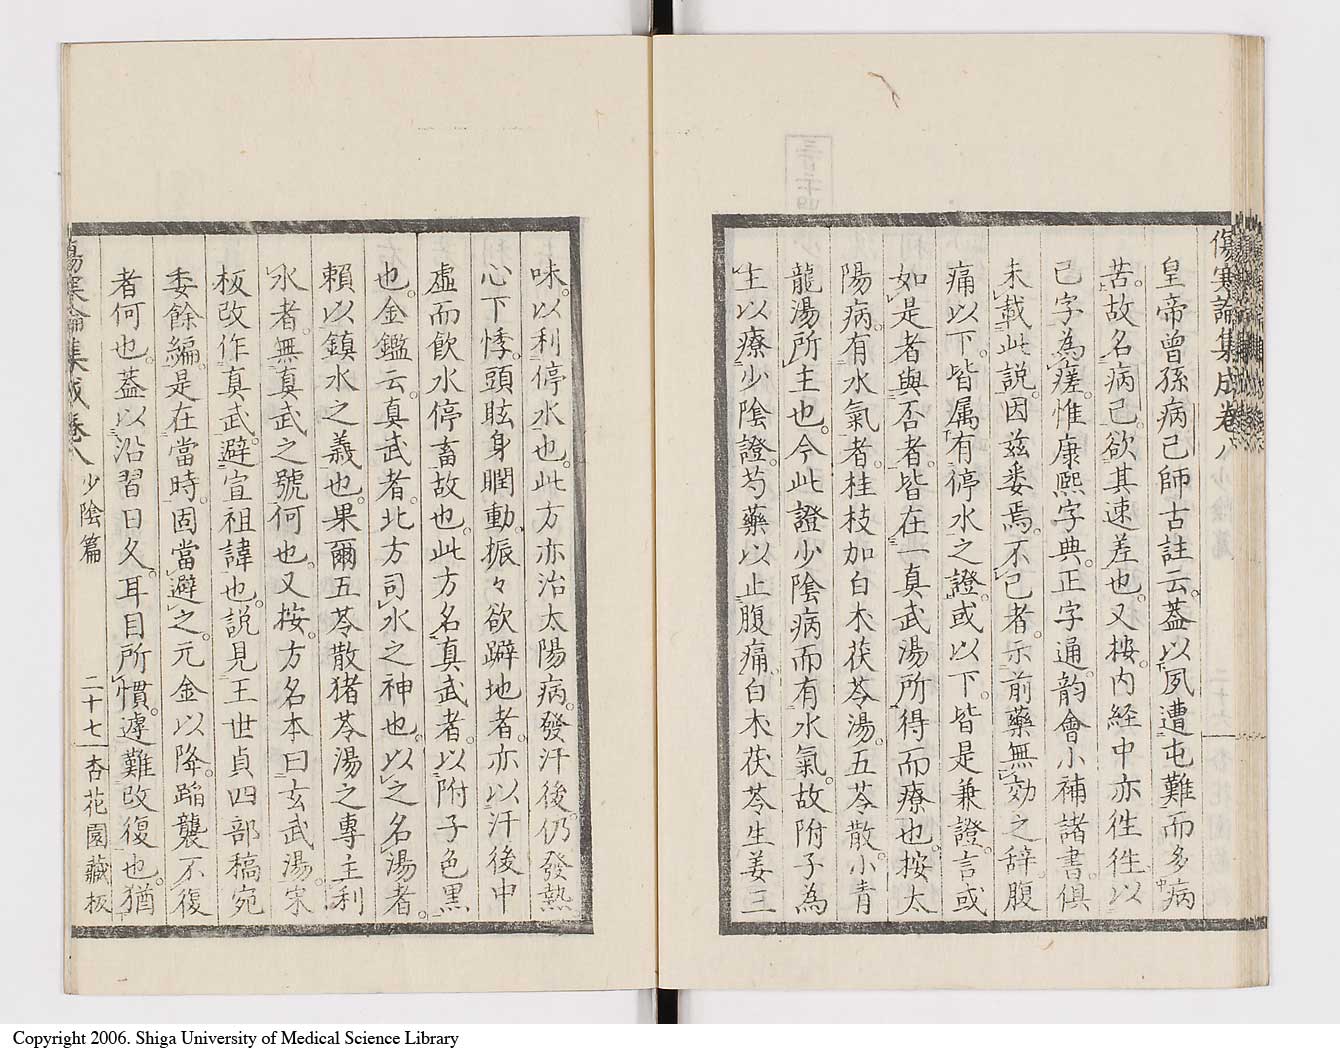 傷寒論集成卷八
皇帝曾孫病已師古註云蓋以夙遭屯難而多病
苦故名病已欲其速差也又按內経中亦徃徃以
已字為瘥惟康熙字典正字通韵會小補諸書俱
未載此説因兹委焉不已者示前藥無効之辞腹
痛以下皆属有停水之證或以下皆是兼證言或
如是者與否者皆在一真武湯所得而療也桉太
陽病有水氣者桂枝加白朮茯苓湯五苓散小青
龍湯所主也今此證少陰病而有水氣故附子為
主以療少陰證芍藥以止腹痛白朮茯苓生姜三
味以利停水也此方亦治太陽病發汗後仍發熱
心下悸頭眩身瞤動振々欲躃地者亦以汗後中
虛而飲水停畜故也此方名真武者以附子色黒
也金鑑云真武者北方司水之神也以之名湯者
賴以鎮水之義也果爾五苓散猪苓湯之專主利
水者無真武之號何也又桉方名本曰玄武湯宋
板改作真武避宣祖諱也説見王世貞四部稿宛
委餘編是在當時固當避之元金以降蹈襲不復
者何也蓋以沿習日久耳目所慣遽難改復也猶
傷寒論集成卷八 少陰篇 二十七 杏花園藏板
Copyright 2006. Shiga University of Medical Science Library